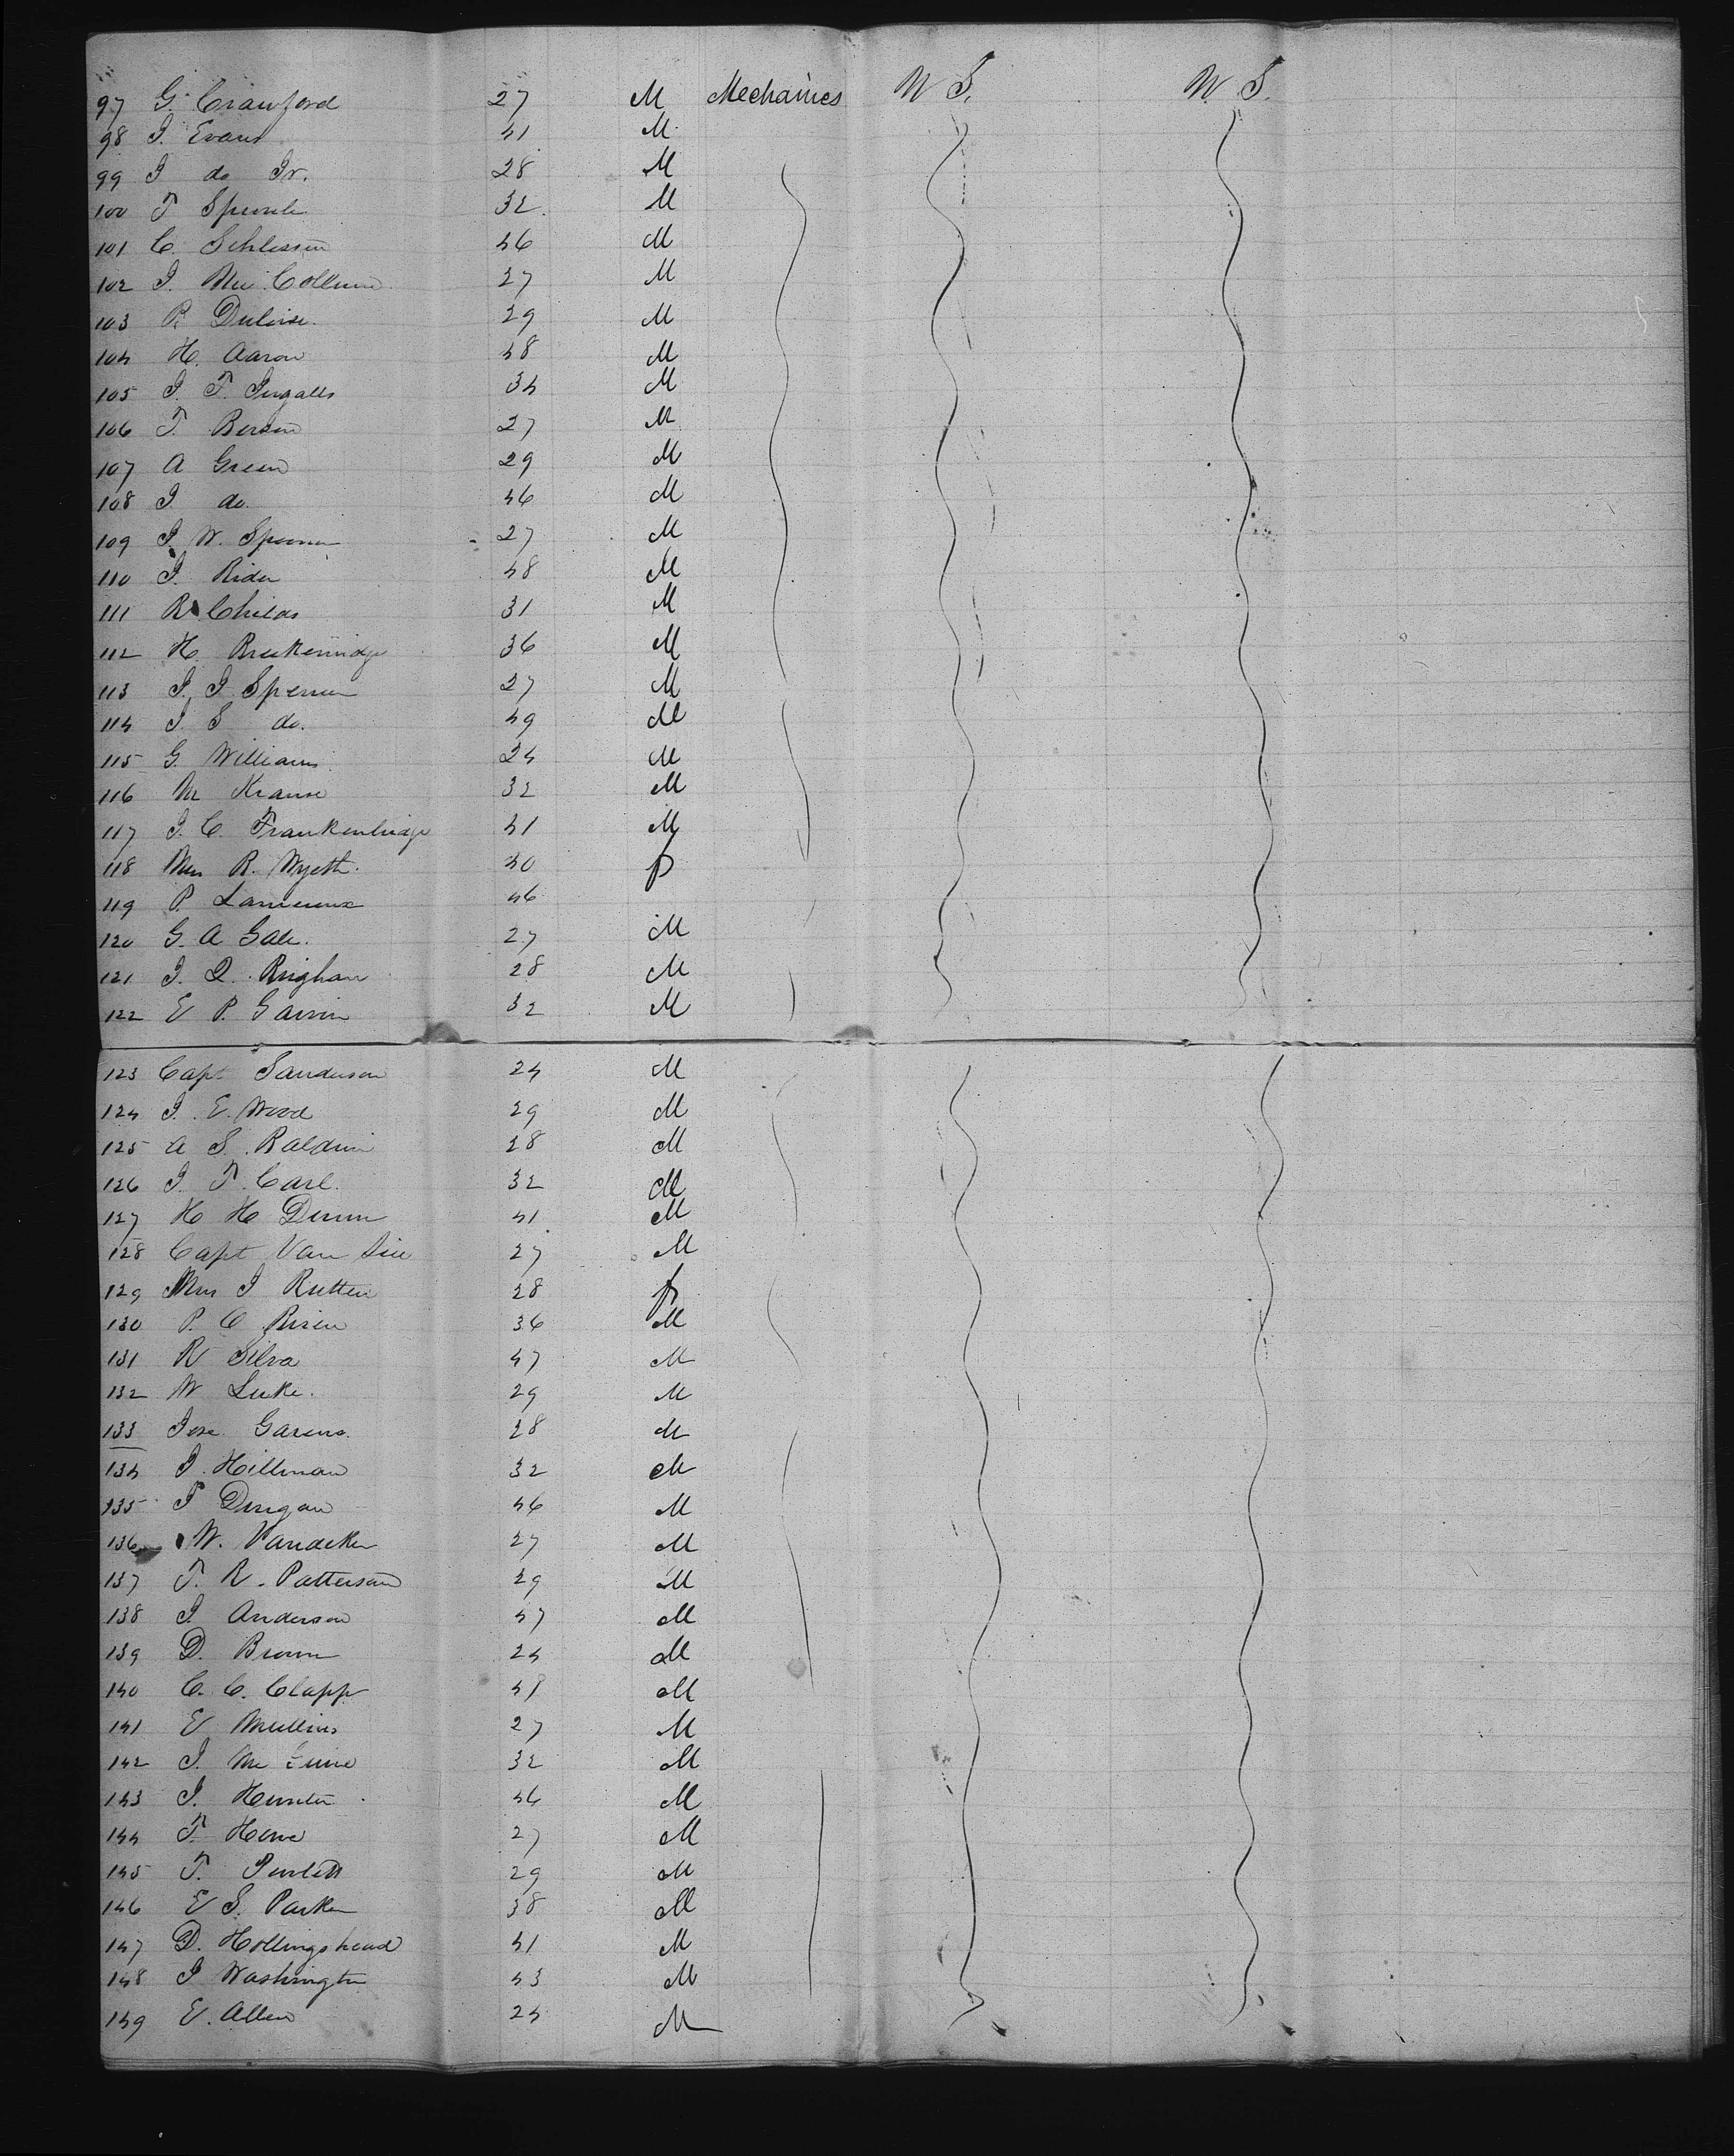 97 G. Crawford 27 M Mechanics U S. U. S.
98 J. Evans 41 M
99 J do Jr. 28 M
100 T 32 M
101 C. 46 M
102 J. Mc Collum 27 M
103 P. 29 M
104 H. Aaron 48 M
105 J. T. Ingalls 34 M
106 T. 27 M
107 A Green 29 M
108 J do. 46 M
109 J. W. Spooner 27 M
110 J. Rider 48 M
111 R Childs 31 M
112 H. Breckenridge 36 M
113 J. J. 27 M
114 J. S do. 49 M
115 G. Williams 24 M
116 M Krause 32 M
117 J. C. 41 M
118 Mrs R. Wyeth. 40 f
119 P. 46
120 G. A Gale. 27 M
121 J. Q. Brigham 28 M
122 E P. 32 M
123 Capt Sanderson 24 M
124 J. E. Wood 29 M
125 A S. Baldwin 28 M
126 J. T. Carl. 32 M
127 H H 41 M
128 Capt Van 27 M
129 Mrs J 28 f
130 P. C 36 M
131 R Silva 47 M
132 W Luke. 29 M
133 Jose 28 M
134 J. Hillman 32 M
135 46 M
136 W. 27 M
137 T. R. Patterson 29 M
138 J. Anderson 47 M
139 D. Brown 24 M
140 C. C. Clapp 41 M
141 E Mullins 27 M
142 J. Mc 32 M
143 J. Hunter 46 M
144 T. Howe 27 M
145 T. 29 M
146 E S. Parker 38 M
147 D. Hollingshead 41 M
148 J Washington 43 M
149 E. Allen 24 M